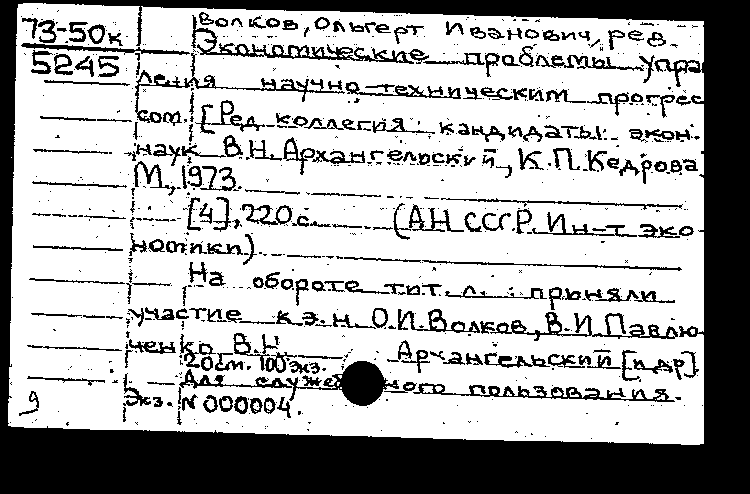 73-50к
5245
Волков, Ольгерт Иванович, рев.
Экономические проблемы управ
ления научно-техническим прогрес
сом. [Ред. коллегия: кандидаты экон.
наук В.Н. Архангельский, К.П. Кедрова
М., 1973.
[4], 220 с. (АН СССР. Ин-т эко-
номики)
На обороте тит. л.: приняли
участие к.э.н. О.И. Волков, В.И. Павлю-
ченко, В.Н. Архангельский [и др].
20 см. 100 экз.
Для служебного пользования.
Экз. N 000004.
9